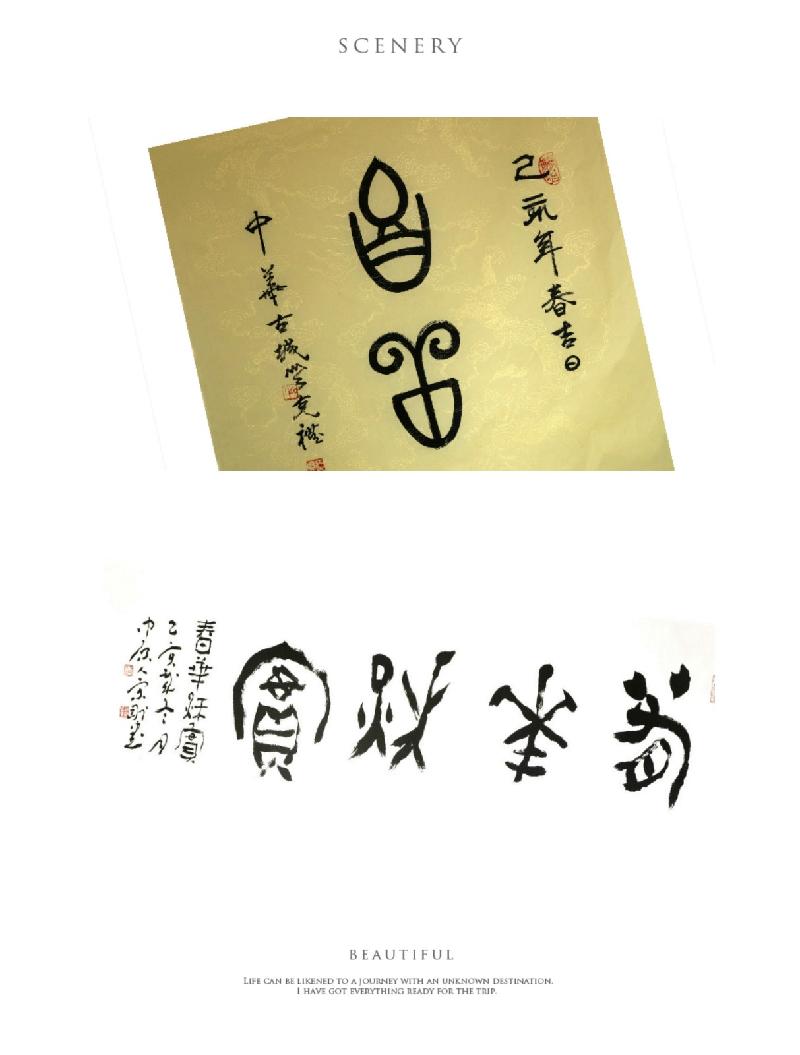 SCENERY
己亥年春吉日
中華古城
春華秋實
春華秋實
己亥歲冬月
中原人
BEAUTIFUL
LIFE CAN BE LIKENED TO A JOURNEY WITH AN UNKNOWN DESTINATION.
I HAVE GOT EVERYTHING READY FOR THE TRIP.